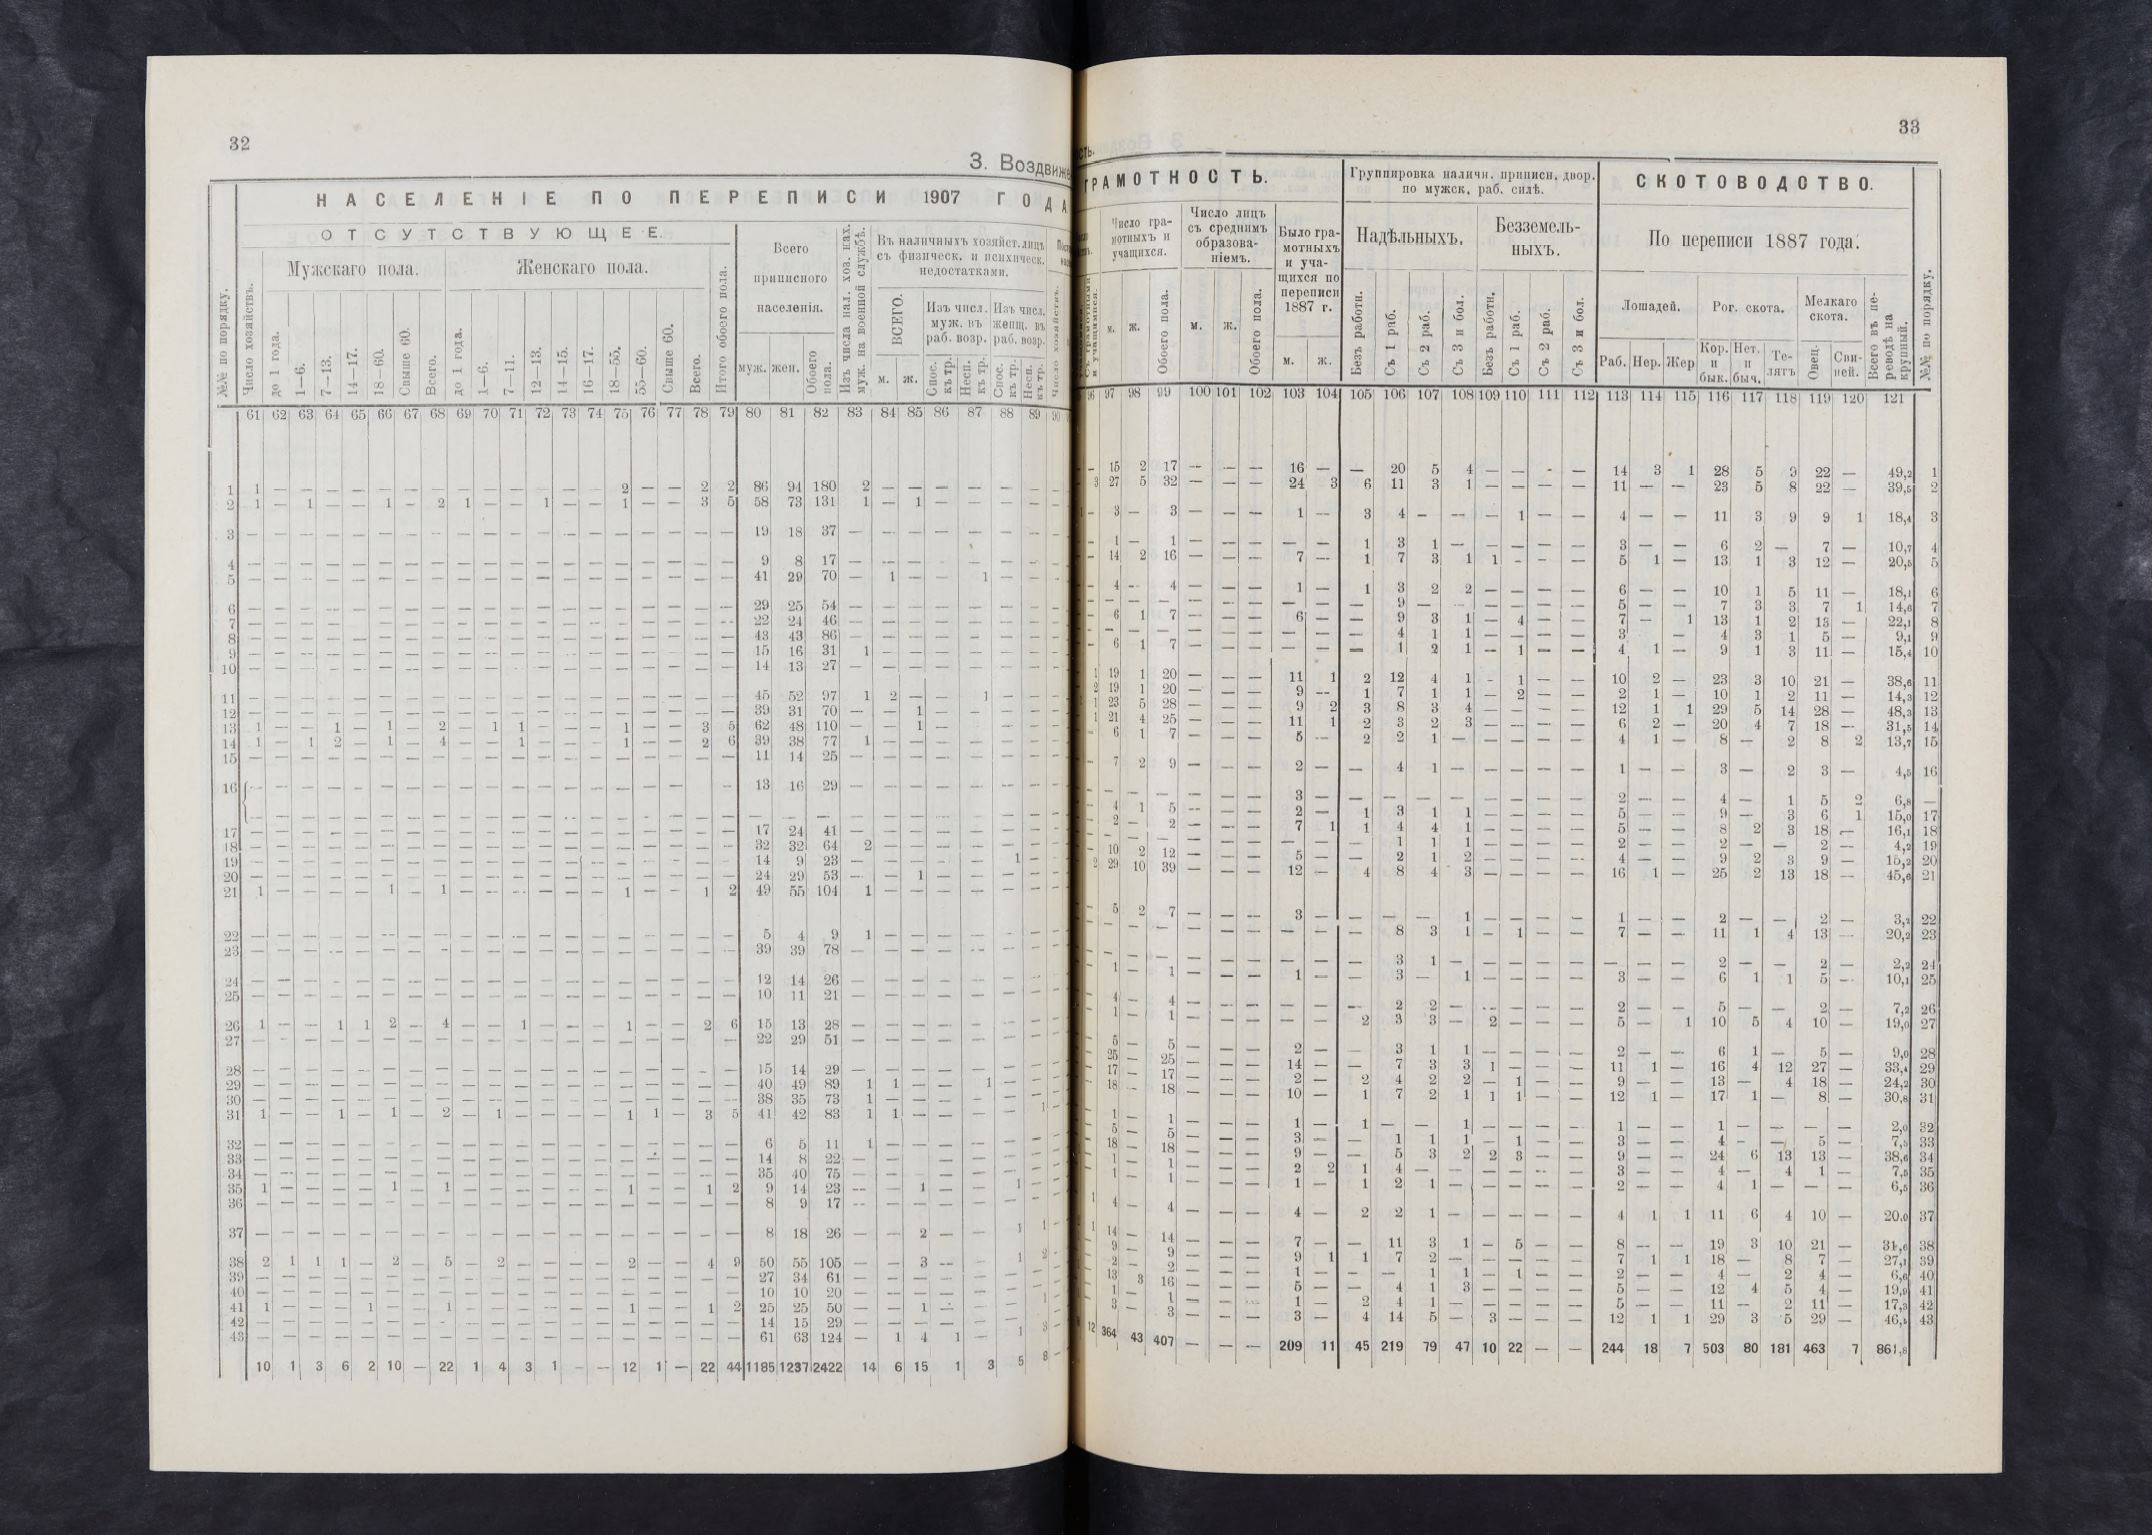 32
3. Воздвиже
НАСЕЛЕНІЕ ПО ПЕРЕПИСИ 1907 ГОДА
ОТСУТСТВУЮЩЕЕ.
Мужскаго пола. Женскаго пола.
№№ по порядку. Число хозяйствъ. до 1 года. 1—6. 7—13. 14—17. 18—60. Свыше 60. Всего. до 1 года. 1—6. 7—11. 12—13. 14—15. 16—17. 18—55. 55—60. Свыше 60. Всего. Итого обоего пола.
Всего приписного населенія. муж. жен. Обоего пола.
Изъ числа нал. хоз. нах. муж. на военной службѣ.
Въ наличныхъ хозяйст. лицъ съ физическ. и психическ. недостатками.
ВСЕГО. м. ж.
Изъ числ. муж. въ раб. возр. Спос. къ тр. Несп. къ тр.
Изъ числ. женщ. въ раб. возр. Спос. къ тр. Несп. къ тр.
Число хозяйствъ.
61 62 63 64 65 66 67 68 69 70 71 72 73 74 75 76 77 78 79 80 81 82 83 84 85 86 87 88 89 90
1 1 — — — — — — — — — — — — — 2 — — 2 2 86 94 180 2 — — — — — —
2 1 — 1 — — 1 — 2 1 — — 1 — — 1 — — 3 5 58 73 131 1 — 1 — — — —
3 — — — — — — — — — — — — — — — — — — — 19 18 37 — — — — — — —
4 — — — — — — — — — — — — — — — — — — — 9 8 17 — — — — — — —
5 — — — — — — — — — — — — — — — — — — — 41 29 70 — 1 — — 1 — —
6 — — — — — — — — — — — — — — — — — — — 29 25 54 — — — — — — —
7 — — — — — — — — — — — — — — — — — — — 22 24 46 — — — — — — —
8 — — — — — — — — — — — — — — — — — — — 43 43 86 — — — — — — —
9 — — — — — — — — — — — — — — — — — — — 15 16 31 1 — — — — — —
10 — — — — — — — — — — — — — — — — — — — 14 13 27 — — — — — — —
11 — — — — — — — — — — — — — — — — — — — 45 52 97 1 2 — — 1 — —
12 — — — — — — — — — — — — — — — — — — — 39 31 70 — — 1 — — — —
13 1 — — 1 — 1 — 2 — 1 1 — — — 1 — — 3 5 62 48 110 — — 1 — — — —
14 1 — 1 2 — 1 — 4 — — 1 — — — 1 — — 2 6 39 38 77 1 — — — — — —
15 — — — — — — — — — — — — — — — — — — — 11 14 25 — — — — — — —
16 — — — — — — — — — — — — — — — — — — — 13 16 29 — — — — — — —
— — — — — — — — — — — — — — — — — — — — — — — — — — — — —
17 — — — — — — — — — — — — — — — — — — — 17 24 41 — — — — — — —
18 — — — — — — — — — — — — — — — — — — — 32 32 64 2 — — — — — —
19 — — — — — — — — — — — — — — — — — — — 14 9 23 — — — — — 1 —
20 — — — — — — — — — — — — — — — — — — — 24 29 53 — — 1 — — — —
21 1 — — — — 1 — 1 — — — — — — 1 — — 1 2 49 55 104 1 — — — — — —
22 — — — — — — — — — — — — — — — — — — — 5 4 9 1 — — — — — —
23 — — — — — — — — — — — — — — — — — — — 39 39 78 — — — — — — —
24 — — — — — — — — — — — — — — — — — — — 12 14 26 — — — — — — —
25 — — — — — — — — — — — — — — — — — — — 10 11 21 — — — — — — —
26 1 — — 1 1 2 — 4 — — 1 — — — 1 — — 2 6 15 13 28 — — — — — — —
27 — — — — — — — — — — — — — — — — — — — 22 29 51 — — — — — — —
28 — — — — — — — — — — — — — — — — — — — 15 14 29 — — — — — — —
29 — — — — — — — — — — — — — — — — — — — 40 49 89 1 1 — — 1 — —
30 — — — — — — — — — — — — — — — — — — — 38 35 73 1 — — — — — —
31 1 — — 1 — 1 — 2 — 1 — — — — 1 1 — 3 5 41 42 83 1 1 — — — — 1
32 — — — — — — — — — — — — — — — — — — — 6 5 11 1 — — — — — —
33 — — — — — — — — — — — — — — — — — — — 14 8 22 — — — — — — —
34 — — — — — — — — — — — — — — — — — — — 35 40 75 — — — — — — —
35 1 — — — — 1 — 1 — — — — — — 1 — — 1 2 9 14 23 — — 1 — — 1 —
36 — — — — — — — — — — — — — — — — — — — 8 9 17 — — — — — — —
37 — — — — — — — — — — — — — — — — — — — 8 18 26 — — 2 — — 1 1
38 2 1 1 1 — 2 — 5 — 2 — — — — 2 — — 4 9 50 55 105 — — 3 — — 1 2
39 — — — — — — — — — — — — — — — — — — — 27 34 61 — — — — — — —
40 — — — — — — — — — — — — — — — — — — — 10 10 20 — — — — — — —
41 1 — — — 1 — — 1 — — — — — — 1 — — 1 2 25 25 50 — — 1 — — — 1
42 — — — — — — — — — — — — — — — — — — — 14 15 29 — — — — — — —
43 — — — — — — — — — — — — — — — — — — — 61 63 124 — 1 4 1 — 1 3
10 1 3 6 2 10 — 22 1 4 3 1 — — 12 1 — 22 44 1185 1237 2422 14 6 15 1 3 5 8
33
сть.
ГРАМОТНОСТЬ.
Число грамотныхъ и учащихся. м. ж. Обоего пола.
Число лицъ съ среднимъ образованіемъ. м. ж. Обоего пола.
Было грамотныхъ и учащихся по переписи 1887 г. м. ж.
Группировка наличн. приписн. двор. по мужск. раб. силѣ.
Надѣльныхъ. Безъ работн. Съ 1 раб. Съ 2 раб. Съ 3 и бол.
Безземельныхъ. Безъ работн. Съ 1 раб. Съ 2 раб. Съ 3 и бол.
СКОТОВОДСТВО.
По переписи 1887 года.
Лошадей. Раб. Нер. Жер
Рог. скота. Кор. и бык. Нет. и быч. Телятъ
Мелкаго скота. Овец. Свиней.
Всего въ переводѣ на крупный.
№№ по порядку.
96 97 98 99 100 101 102 103 104 105 106 107 108 109 110 111 112 113 114 115 116 117 118 119 120 121
— 15 2 17 — — — 16 — — 20 5 4 — — - — 14 3 1 28 5 9 22 — 49,2 1
3 27 5 32 — — — 24 3 6 11 3 1 — — — — 11 — — 23 5 8 22 — 39,5 2
— 3 — 3 — — — 1 — 3 4 — — — 1 — — 4 — — 11 3 9 9 1 18,4 3
— 1 — 1 — — — — — 1 3 1 — — — — — 3 — — 6 2 — 7 — 10,7 4
— 14 2 16 — — — 7 — 1 7 3 1 1 - — — 5 1 — 13 1 3 12 — 20,5 5
— 4 — 4 — — — 1 — 1 3 2 2 — — — — 6 — — 10 1 5 11 — 18,1 6
— — — — — — — — — — 9 — — — — — — 5 — — 7 3 3 7 1 14,6 7
— 6 1 7 — — — 6 — — 9 3 1 — 4 — — 7 — 1 13 1 2 13 — 22,1 8
— — — — — — — — — — 4 1 1 — — — — 3 — 4 3 1 5 — 9,1 9
— 6 1 7 — — — — — — 1 2 1 — 1 — — 4 1 — 9 1 3 11 — 15,4 10
1 19 1 20 — — — 11 1 2 12 4 1 - 1 — — 10 2 — 23 3 10 21 — 38,6 11
2 19 1 20 — — — 9 — 1 7 1 1 — 2 — — 2 1 — 10 1 2 11 — 14,3 12
1 23 5 28 — — — 9 2 3 8 3 4 — — — — 12 1 1 29 5 14 28 — 48,3 13
1 21 4 25 — — — 11 1 2 3 2 3 — — — — 6 2 — 20 4 7 18 — 31,5 14
— 6 1 7 — — — 5 — 2 2 1 — — — — — 4 1 — 8 — 2 8 2 13,7 15
— 7 2 9 — — — 2 — — 4 1 — — — — — 1 — — 3 — 2 3 — 4,5 16
— — — — — — — 3 — — — — — — — — — 2 — — 4 — 1 5 2 6,8 —
— 4 1 5 — — — 2 — 1 3 1 1 — — — — 5 — — 9 — 3 6 1 15,0 17
— 2 — 2 — — — 7 1 1 4 4 1 — — — — 5 — — 8 2 3 18 — 16,1 18
— — — — — — — — — — 1 1 1 — — — — 2 — — 2 — — 2 — 4,2 19
— 10 2 12 — — — 5 — — 2 1 2 — — — — 4 — — 9 2 3 9 — 15,2 20
2 29 10 39 — — — 12 — 4 8 4 3 — — — — 16 1 — 25 2 13 18 — 45,6 21
— 5 2 7 — — — 3 — — — — 1 — — — — 1 — — 2 — — 2 — 3,2 22
— — — — — — — — — — 8 3 1 — 1 — — 7 — — 11 1 4 13 — 20,2 23
— — — — — — — — — — 3 1 — — — — — — — — 2 — — 2 — 2,2 24
— 1 — 1 — — — 1 — — 3 — 1 — — — — 3 — — 6 1 1 5 — 10,1 25
— 4 — 4 — — — — — — 2 2 — — — — — 2 — — 5 — — 2 — 7,2 26
— 1 — 1 — — — — — 2 3 3 — 2 — — — 5 — 1 10 5 4 10 — 19,0 27
— 5 — 5 — — — 2 — — 3 1 1 — — — — 2 — — 6 1 — 5 — 9,0 28
— 25 — 25 — — — 14 — — 7 3 3 1 — — — 11 1 — 16 4 12 27 — 33,4 29
— 17 — 17 — — — 2 — 2 4 2 2 — 1 — — 9 — — 13 — 4 18 — 24,2 30
— 18 — 18 — — — 10 — 1 7 2 1 1 1 — — 12 1 — 17 1 — 8 — 30,8 31
— 1 — 1 — — — 1 — 1 — — 1 — — — — 1 — — 1 — — — — 2,0 32
— 5 — 5 — — — 3 — — 1 1 1 — 1 — — 3 — — 4 - — 5 — 7,5 33
— 18 — 18 — — — 9 — — 5 3 2 2 3 — — 9 — — 24 6 13 13 — 38,6 34
— 1 — 1 — — — 2 2 1 4 — — — — — — 3 — — 4 — 4 1 — 7,5 35
— 1 — 1 — — — 1 — 1 2 1 — — — — — 2 — — 4 1 — — — 6,5 36
1 4 — 4 — — — 4 — 2 2 1 — — — — — 4 1 1 11 6 4 10 — 20,0 37
1 14 — 14 — — — 7 — — 11 3 1 — 5 — — 8 — — 19 3 10 21 — 31,6 38
— 9 — 9 — — — 9 1 1 7 2 — — — — — 7 1 1 18 — 8 7 — 27,1 39
— 2 — 2 — — — 1 — — — 1 1 — 1 — — 2 — — 4 — 2 4 — 6,6 40
— 13 3 16 — — — 5 — — 4 1 3 — — — — 5 — — 12 4 5 4 — 19,9 41
— 1 — 1 — — — 1 — 2 4 1 — — — — — 5 — — 11 — 2 11 — 17,3 42
— 3 — 3 — — — 3 — 4 14 5 — 3 — — — 12 1 1 29 3 5 29 — 46,5 43
12 364 43 407 — — — 209 11 45 219 79 47 10 22 — — 244 18 7 503 80 181 463 7 861,8